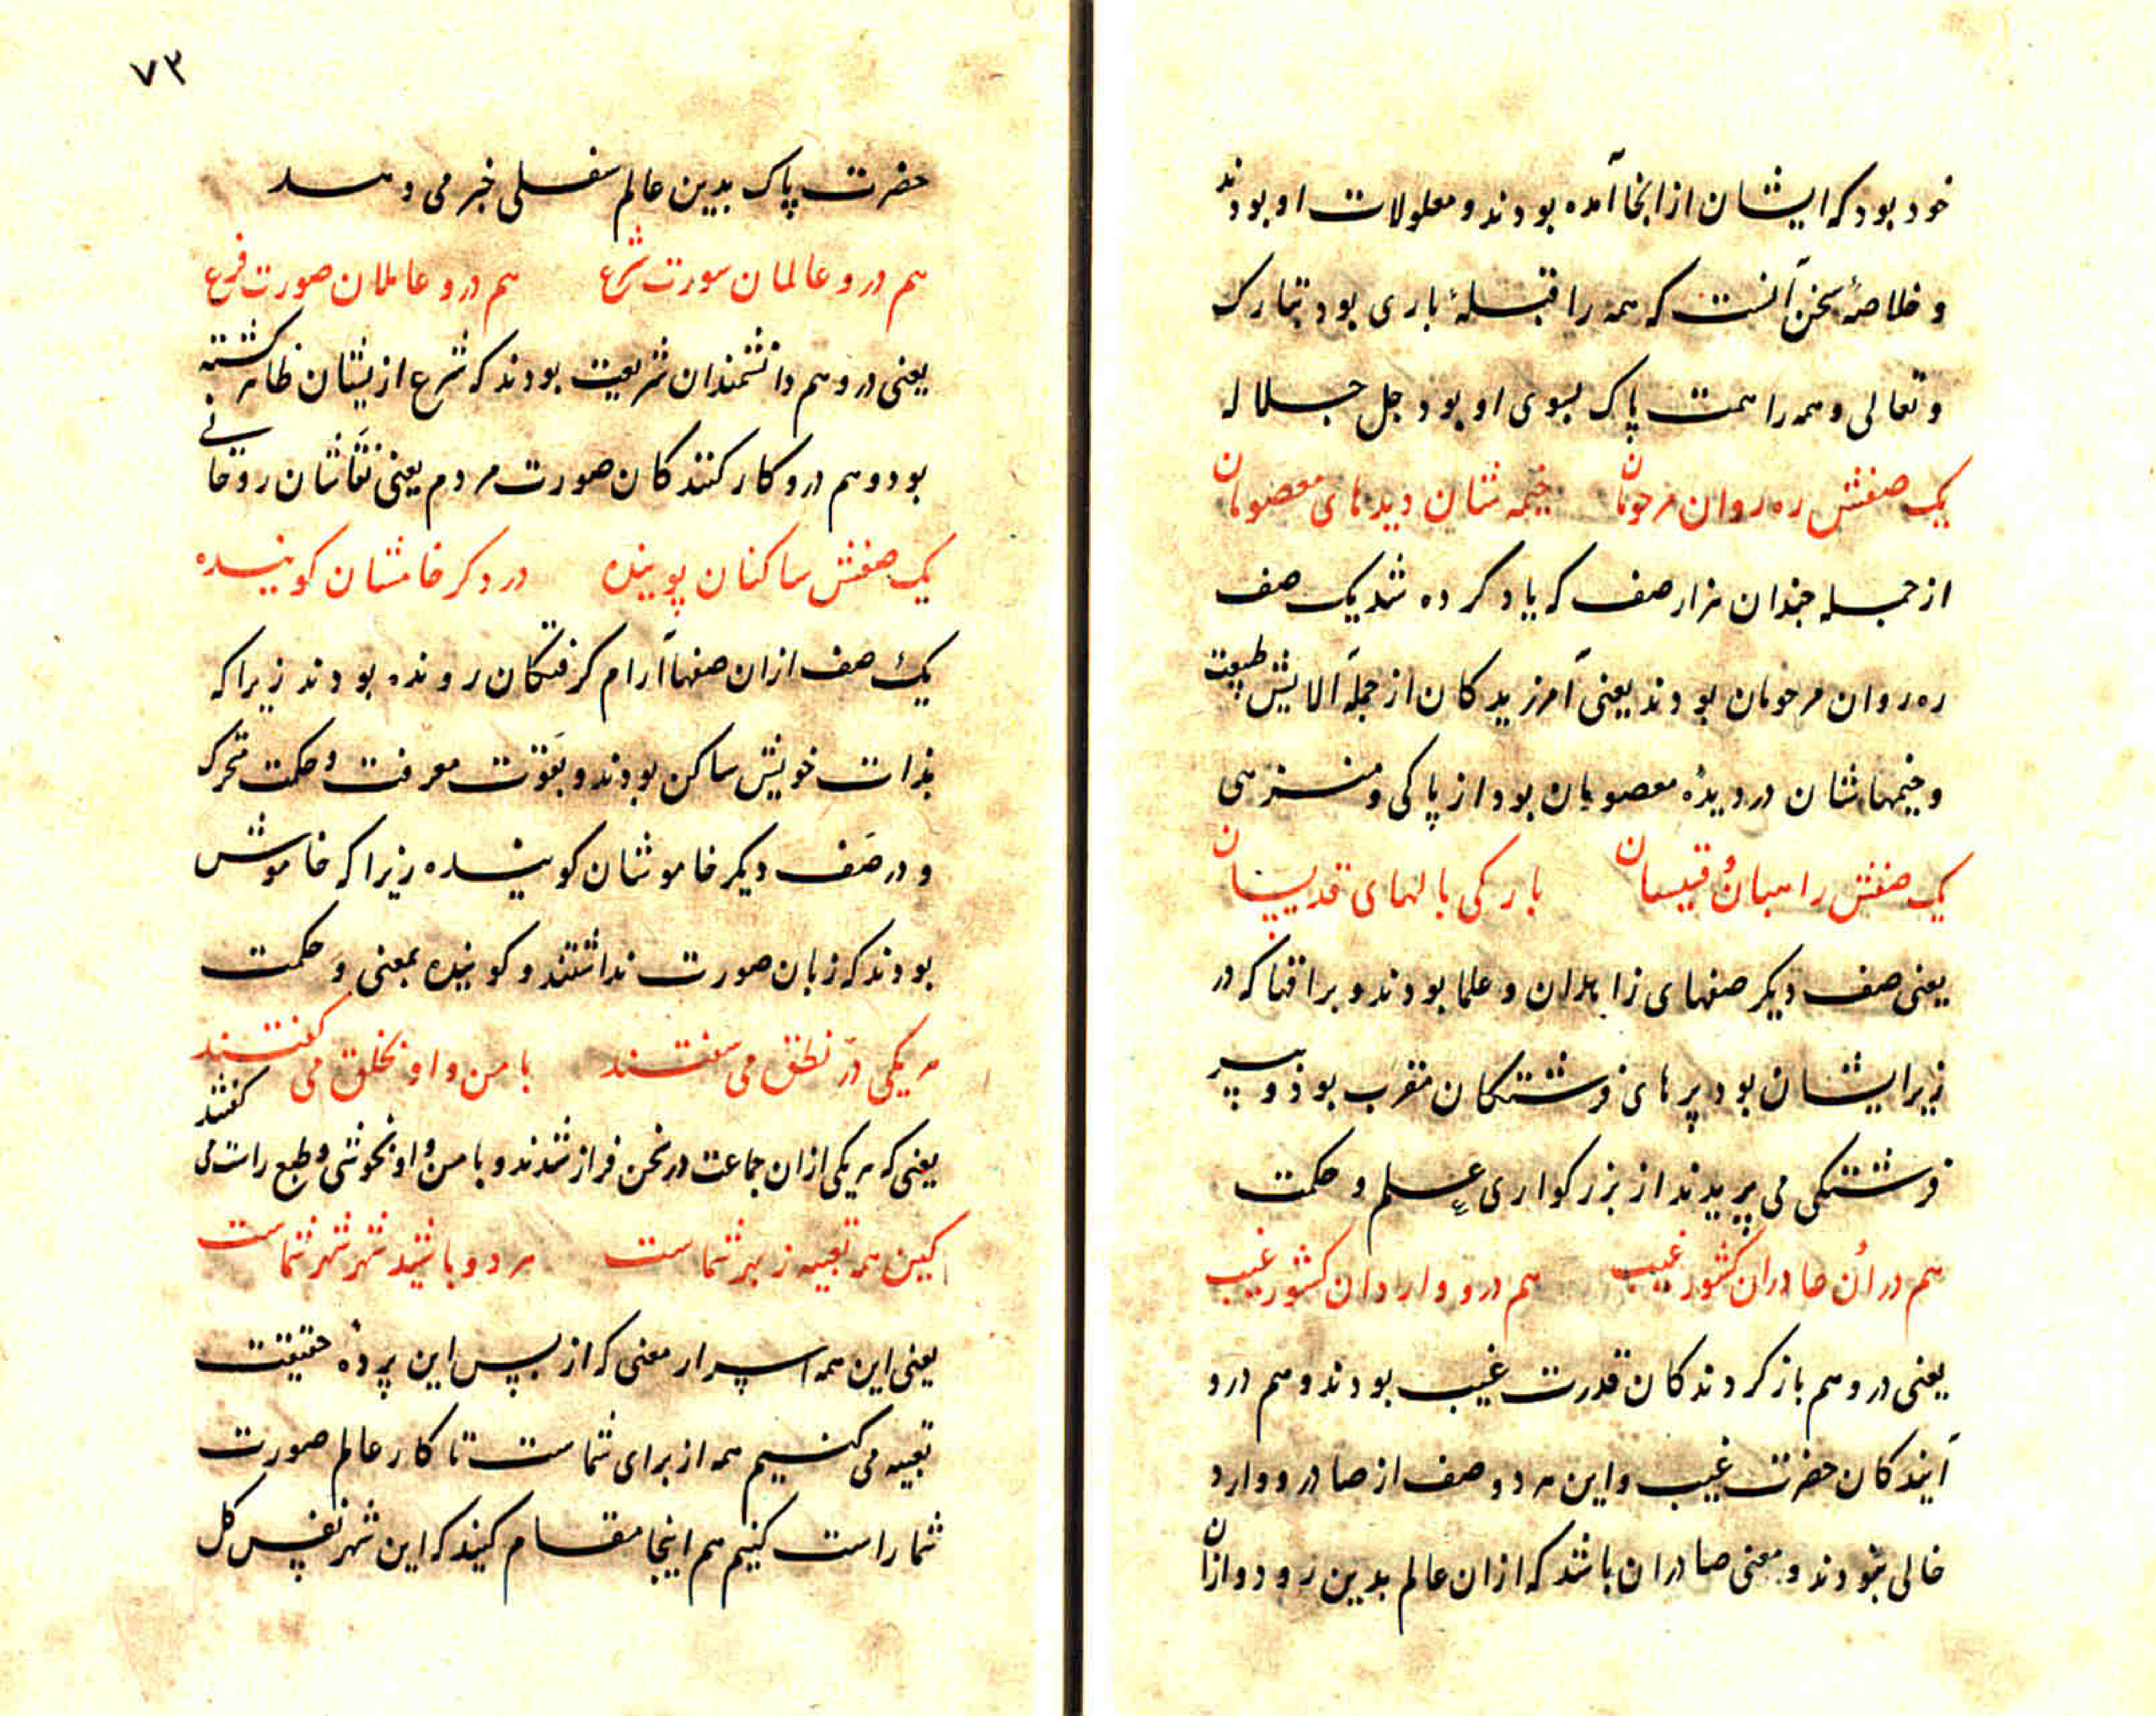 خود بود که ایشان از انجا آمده بودند و معلولات او بودند
و خلاصهٔ سخن آنست که همه را قبلهٔ باری بود تبارک
و تعالی و همه را همت پاک بسوی او بود جل جلاله
یک صفش ره روان مرحومان خیمه شان دیدهای معصومان
از جمله چندان هزار صف که یاد کرده شد یک صف
ره روان مرحومان بودند یعنی آمرزیدکان از جمله آلایش طبیعت
و خیمهاشان در دیدهٔ معصومان بود از پاکی و منزهی
یک صفش راهبان و قسیسان بارکی بالهای قدیسان
یعنی صف دیکر صفهای زاهدان و علما بودند و براقها که در
زیر ایشان بود پرهای فرشتکان مقرب بود و بپر
فرشتکی می پریدند از بزرکواری علم و حکمت
هم در آن صادران کشور غیب هم درو واردان کشور غیب
یعنی درو هم بازکردندکان قدرت غیب بودند و هم درو
آیندکان حضرت غیب و این هر دو صف از صادر و وارد
خالی نبودند و معنی صادران باشد که ازان عالم بدین رود و ازان
۷۳
حضرت پاک بدین عالم سفلی خبر می دهد
هم درو عالمان سورت شرع هم درو عاملان صورت فرع
یعنی درو هم دانشمندان شریعت بودند که شرع ازیشان ظاهر کشته
بود و هم درو کارکنندکان صورت مردم یعنی نقاشان روحانی
یک صفش ساکنان پوینده در دکر خامشان کوینده
یک صف ازان صفها آرام کرفتکان رونده بودند زیرا که
بذات خویش ساکن بودند و بقوت معرفت و حکمت متحرک
و در صف دیکر خاموشان کوینده زیرا که خاموش
بودند که زبان صورت نداشتند و کوینده بمعنی و حکمت
هر یکی در نطق می سفتند با من و او بخلق می کفتند
یعنی که هر یکی ازان جماعت در سخن فراز شدند و با من و او بخوشی و طبع راست می کفتند
کین همه تعبیه ز بهر شماست هر دو باشید شهر شهر شماست
یعنی این همه اسرار معنی که از پس این پردهٔ حقیقت
تعبیه می کنیم همه از برای شماست تا کار عالم صورت
شما راست کنیم هم اینجا مقام کنید که این شهر نفس کل